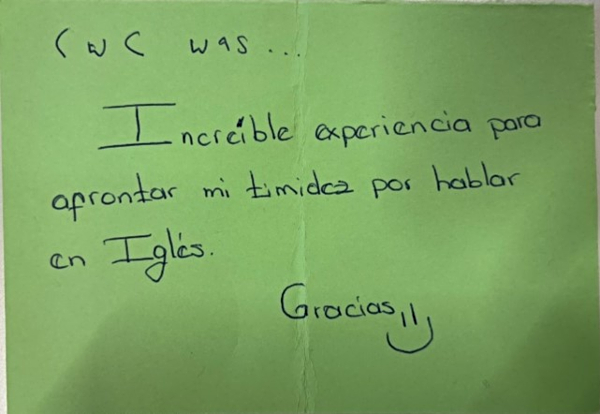 CWC was...
Increíble experiencia para
afrontar mi timidez por hablar
en Iglés.
Gracias